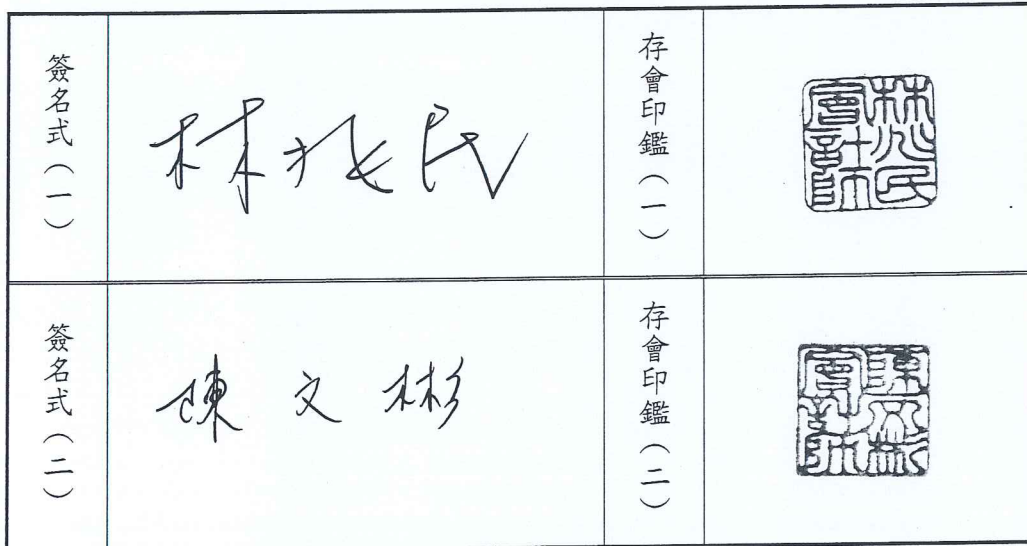 簽名式（一）
林兆民
存會印鑑（一）
林兆民
會計師
簽名式（二）
陳文彬
存會印鑑（二）
陳文彬
會計師